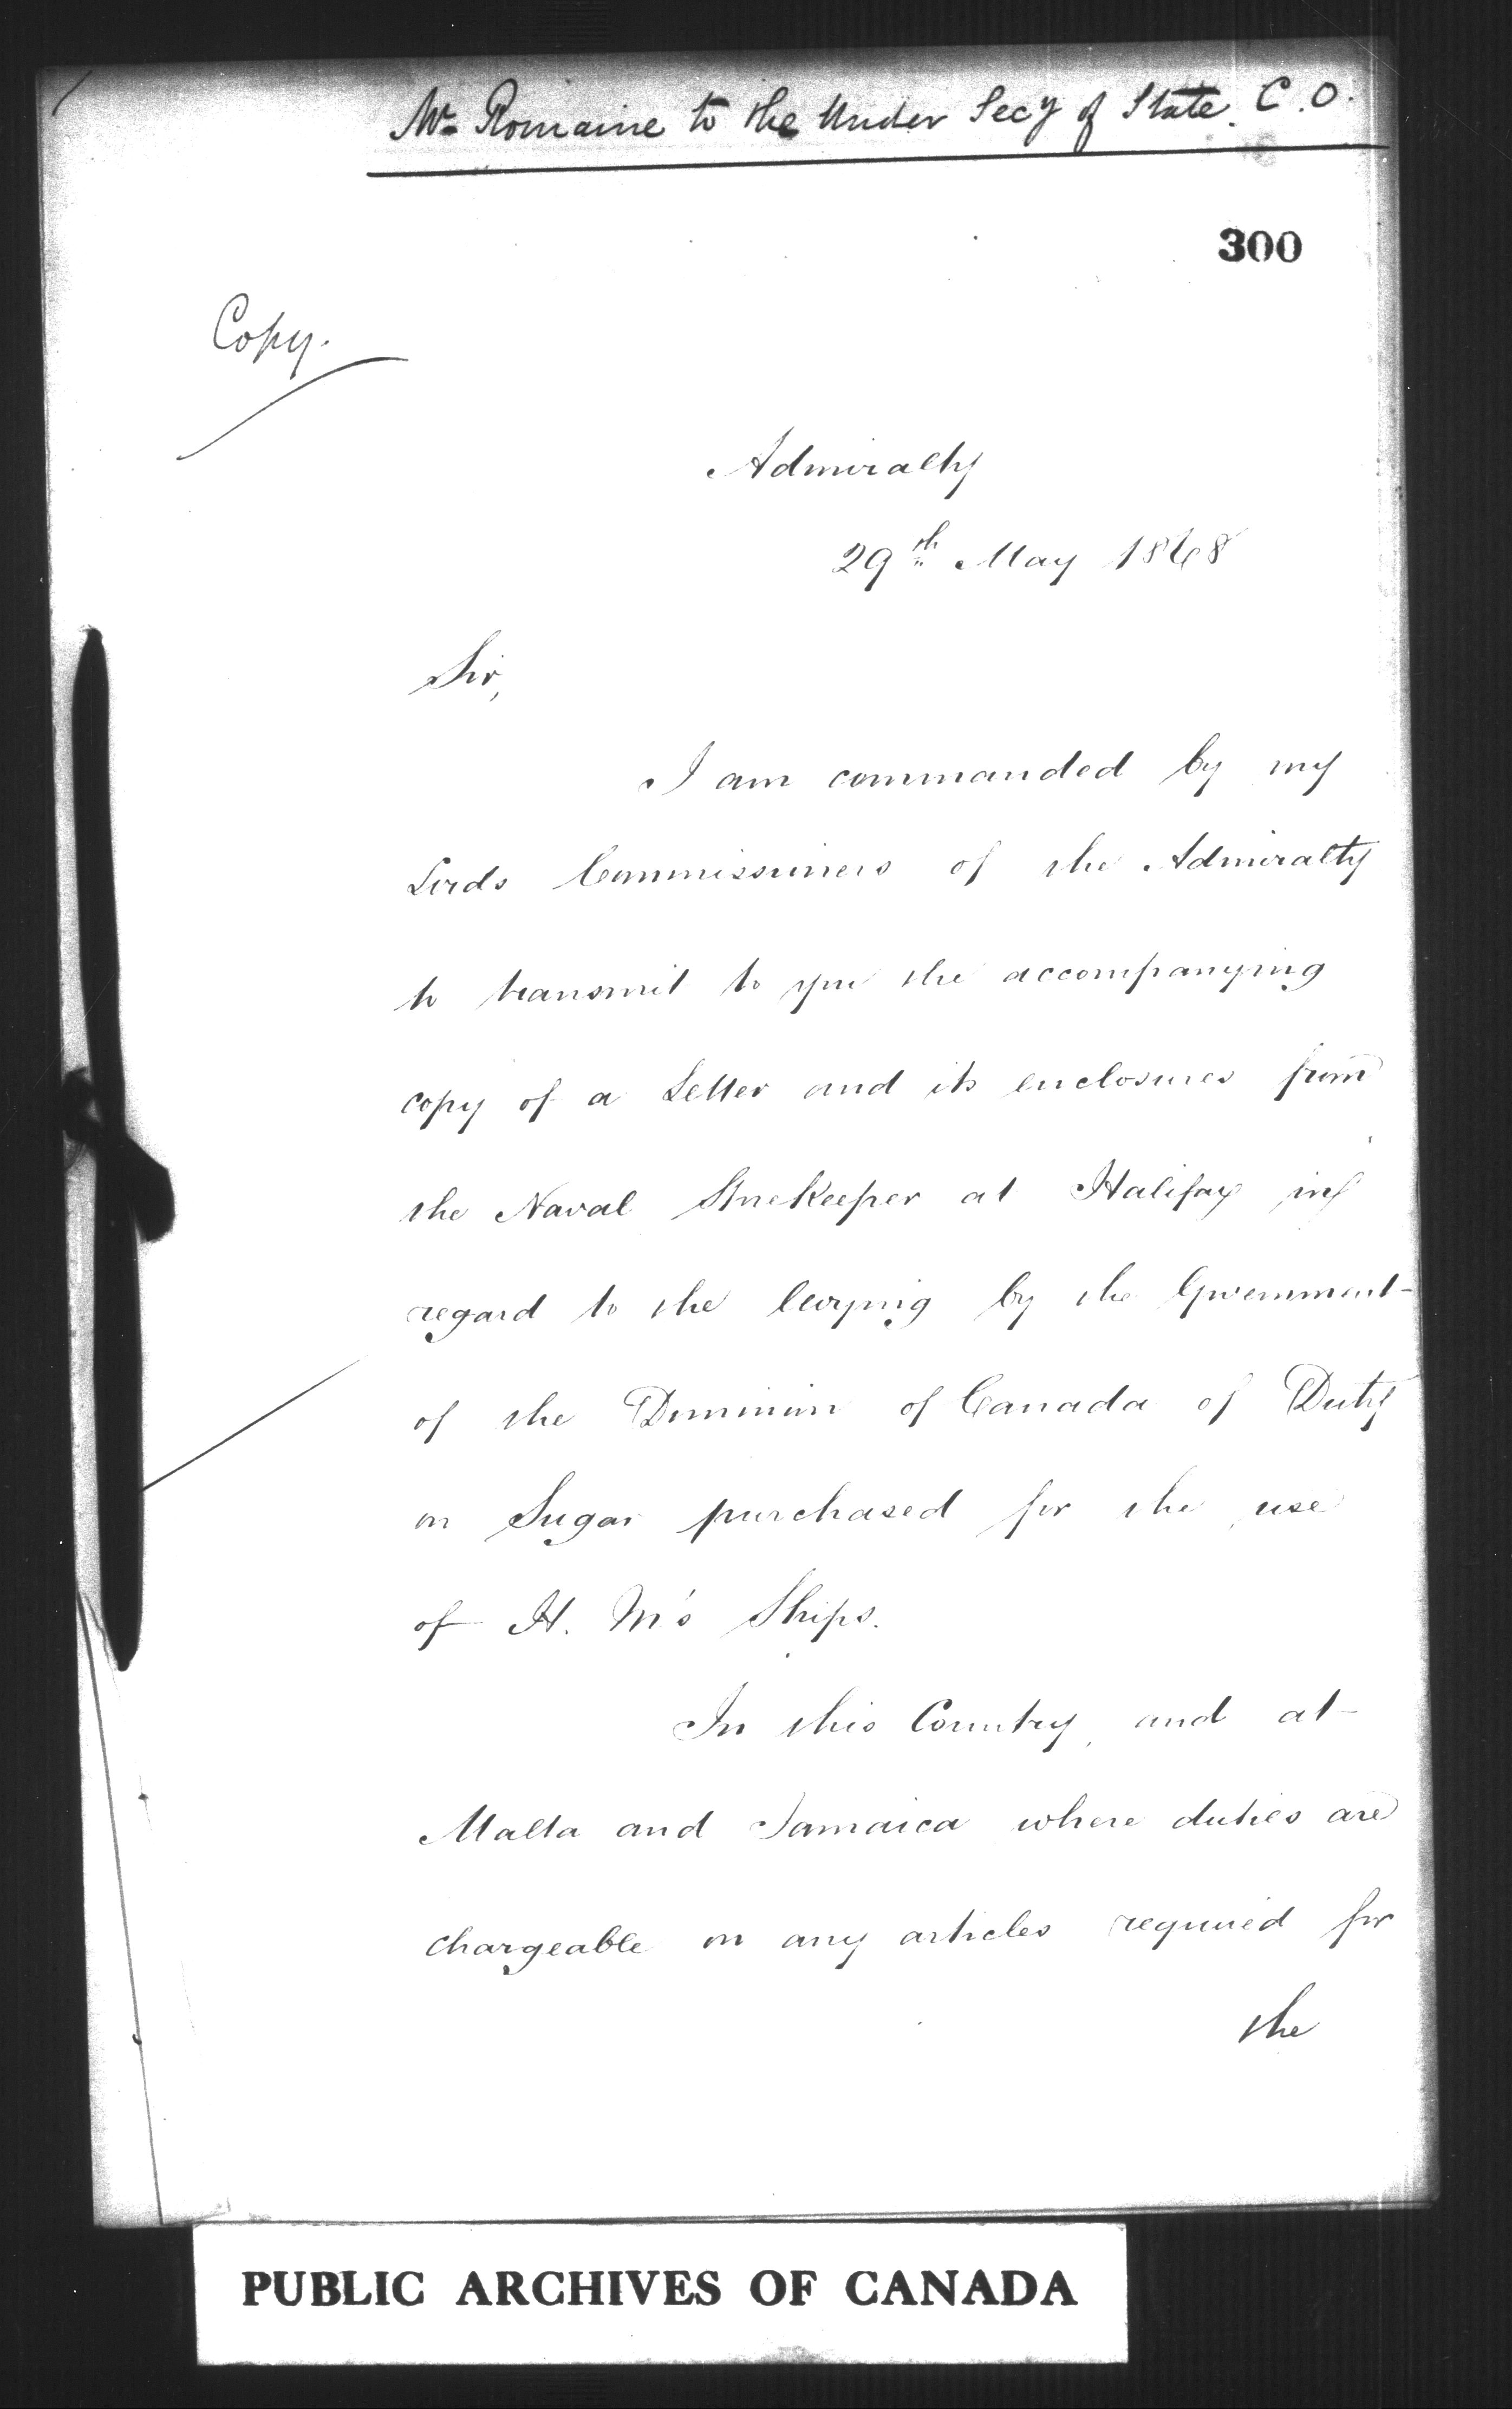 Mr Romaine to the Under Secy of State. C.O.
300
Copy.
Admiralty
29th May 1868
Sir,
I am commanded by my
Lords Commissioners of the Admiralty
to transmit to you the accompanying
copy of a Letter and its enclosures from
the Naval Storekeeper at Halifax in
regard to the levying by the Government
of the Dominion of Canada of Duty
on Sugar purchased for the use
of H. M's Ships.
In this Country, and at
Malta and Jamaica where duties are
chargeable on any articles required for
the
PUBLIC ARCHIVES OF CANADA